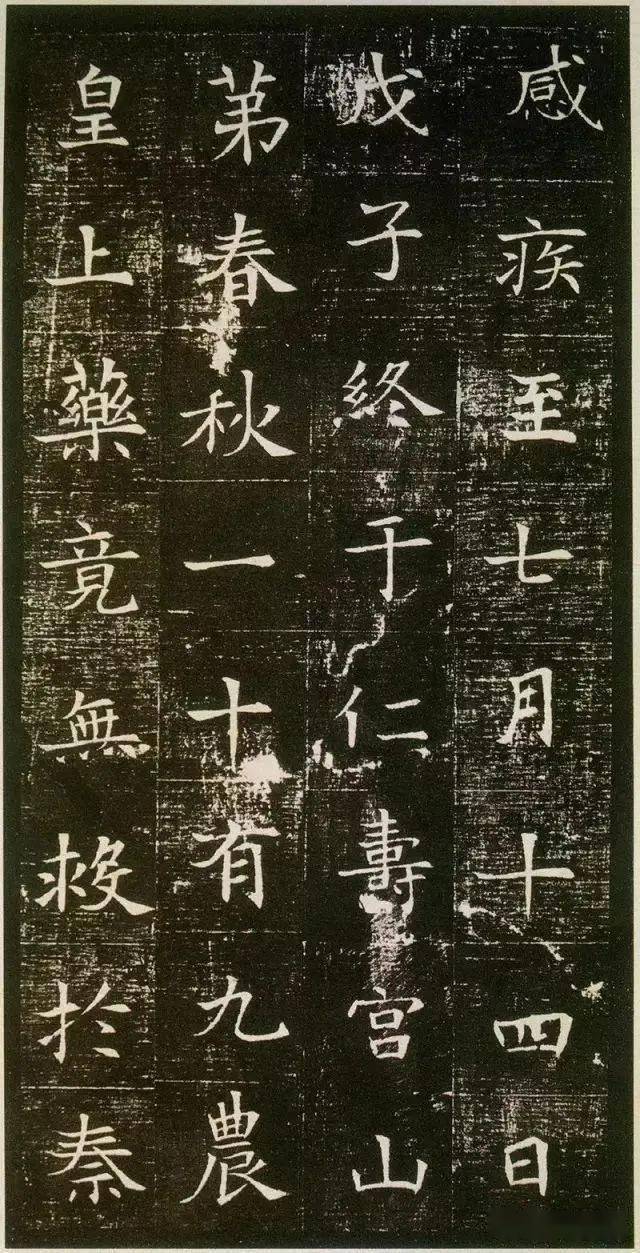 感疾至七月十四日
戊子終于仁壽宫山
苐春秋一十有九農
皇上藥竟無救扵秦